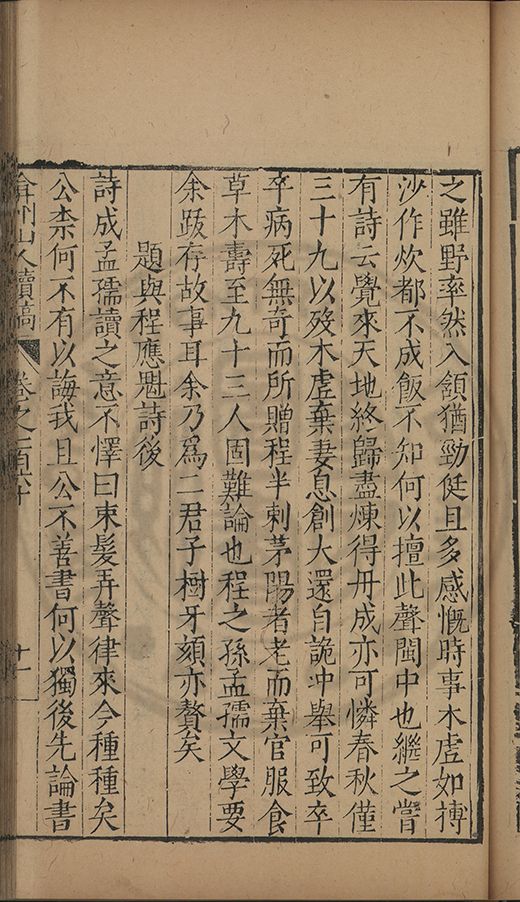 之雖野率然入額猶勁侹且多感慨時事木虛如摶
沙作炊都不成飯不知何以擅此聲閩中也繼之嘗
有詩云覺來天地終歸盡煉得丹成亦可憐春秋僅
三十九以歿木虛棄妻息創大還自詭冲舉可致卒
卒病死無奇而所贈程半刺茅陽者老而棄官服食
草木壽至九十三人固難論也程之孫孟孺文學要
余跋存故事耳余乃為二君子樹牙頰亦贅矣
題與程應魁詩後
詩成孟孺讀之意不懌曰束髮弄聲律來今種種矣
公柰何不有以誨我且公不善書何以獨後先論書
弇州山人續稿 卷之一百六十 十一